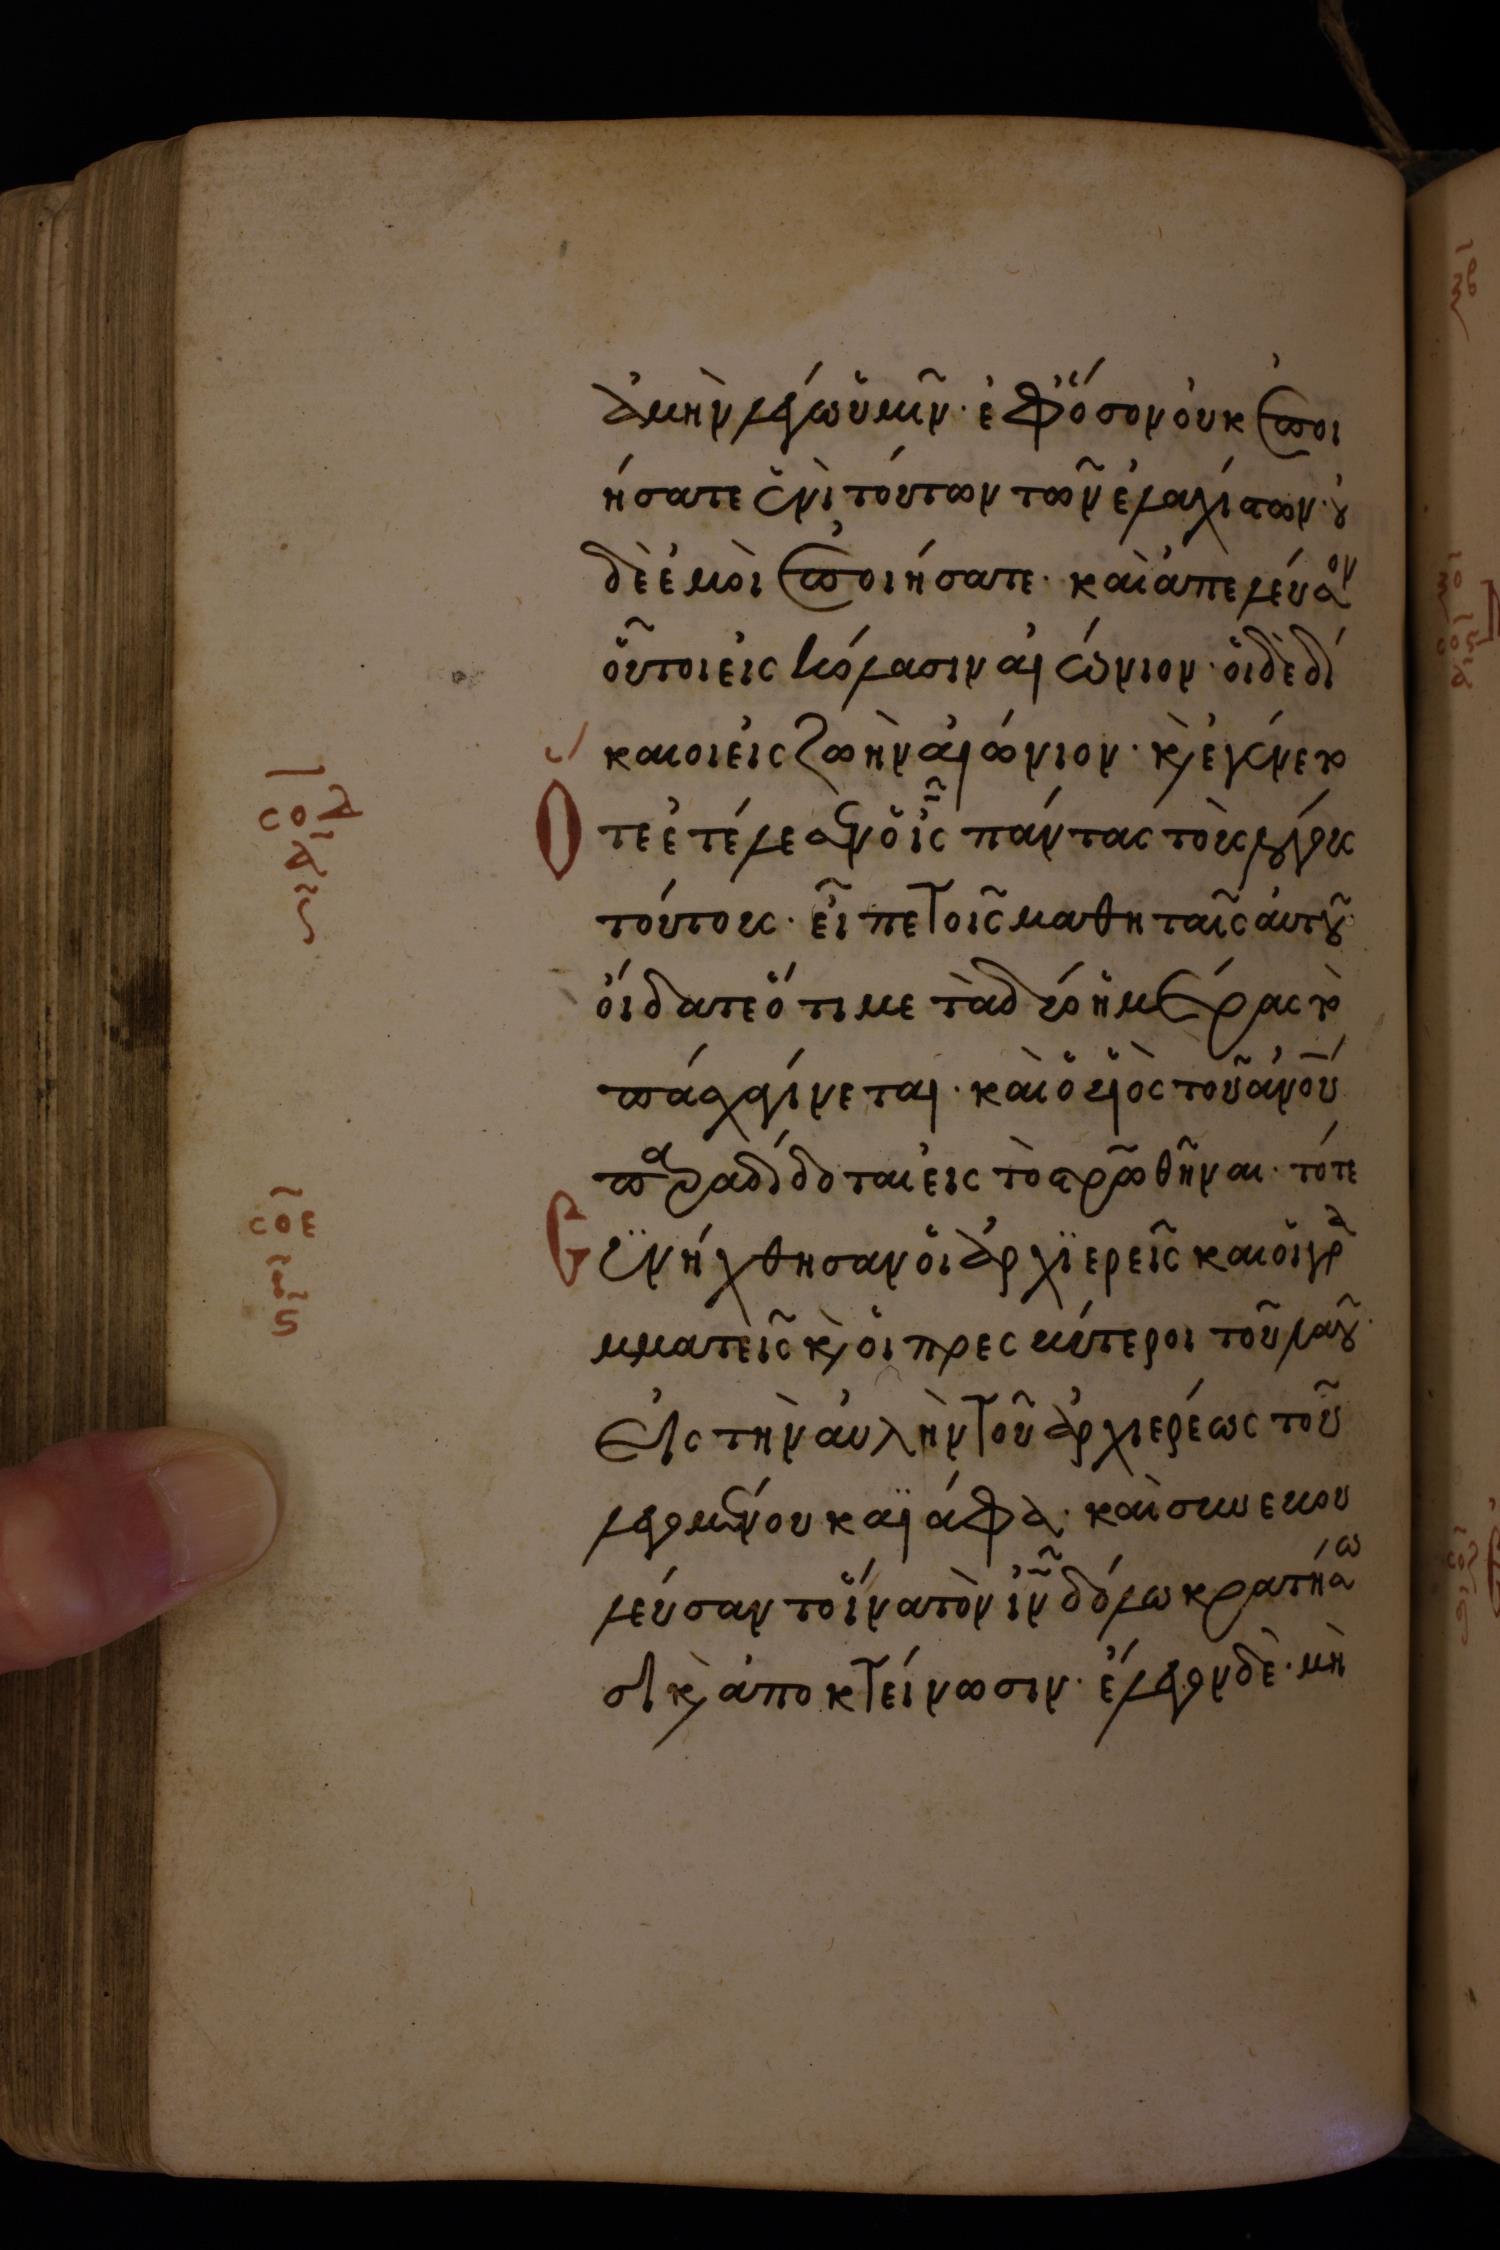 ἀμὴν λέγω ὑμῖν· ἐφ' ὅσον οὐκ ἐποι
ήσατε ἑνὶ τούτων τῶν ἐλαχίστων· οὐ
δὲ ἐμοὶ ἐποιήσατε· καὶ ἀπελεύσον
οὗτοι εἰς κόλασιν αἰώνιον· οἱ δὲ δί
καιοι εἰς ζωὴν αἰώνιον· κ̀ ἐγένετο
Ο τε ἐτέλεσεν ὁ ις̃ πάντας τοὺς λόγους
τούτους· εἶπε τοῖς μαθηταῖς αὐτοῦ·
σοδ
οἴδατε ὅτι μετὰ δύο ἡμέρας τὸ
πάσχα γίνεται· καὶ ὁ υἱὸς τοῦ ανου
παραδίδοται εἰς τὸ στρωθῆναι· τότε
σοε
ς
Συνήχθησαν οἱ ἀρχϊερεῖς καὶ οἱ γρα
μματεῖς κ̀ οἱ πρεσβύτεροι τοῦ λαοῦ·
εἰς τὴν αὐλὴν τοῦ ἀρχιερέως τοῦ
λεγομένου καϊάφα· καὶ συνεβου
λεύσαντο ἵνα τὸν ιν̃ δόλω κρατήσω
σι κ̀ ἀποκτείνωσιν· ἔλεγον δὲ· μὴ